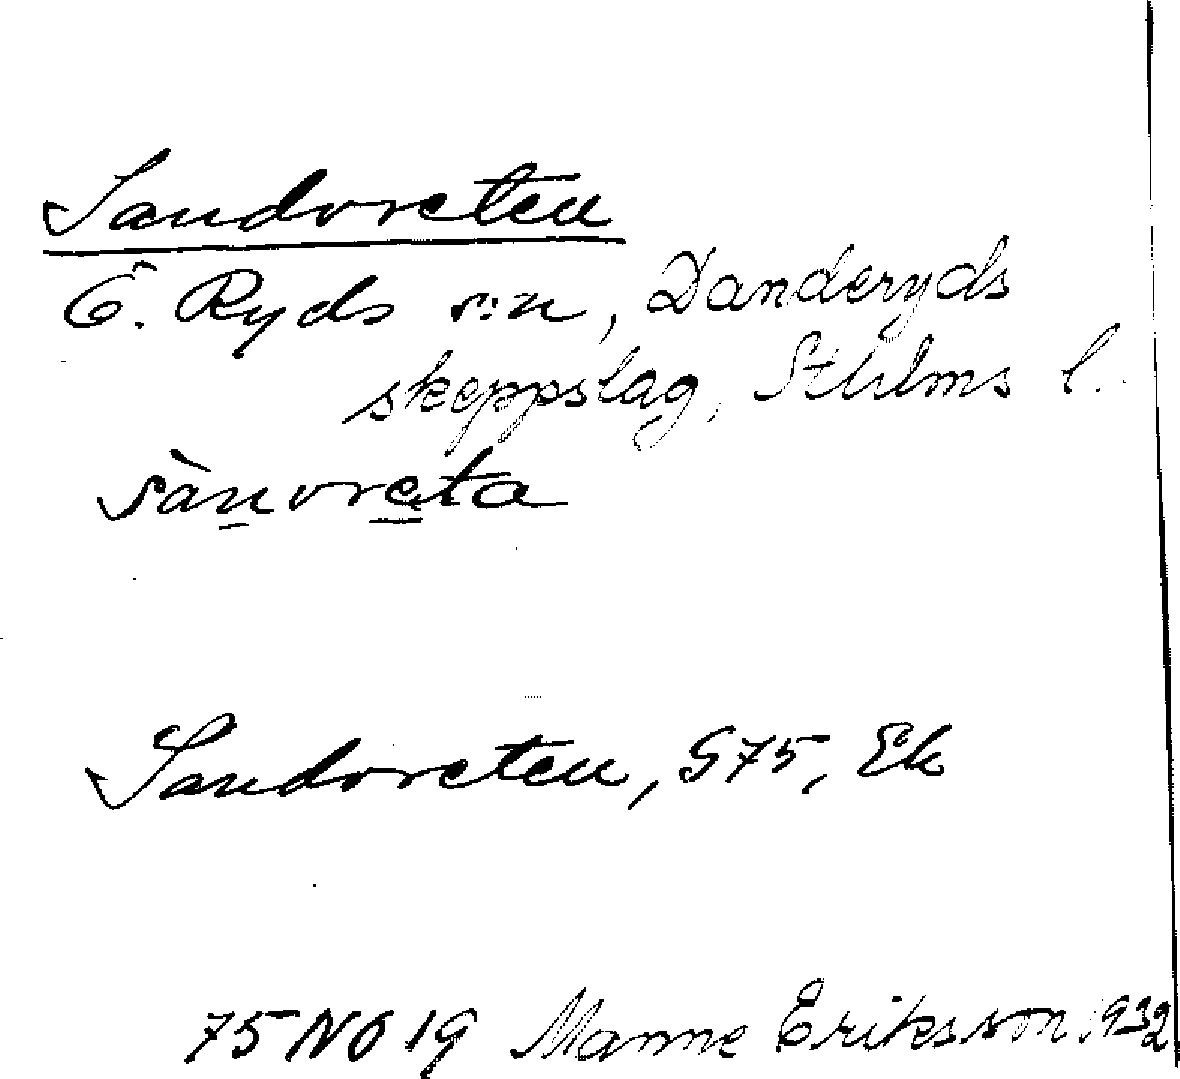 Sandvreten
Ö. Ryds s:n, Danderyds
skeppslag, Sthlms l.
sànvreta
Sandvreten, G75, Ek
75 NO 19 Manne Eriksson 1932